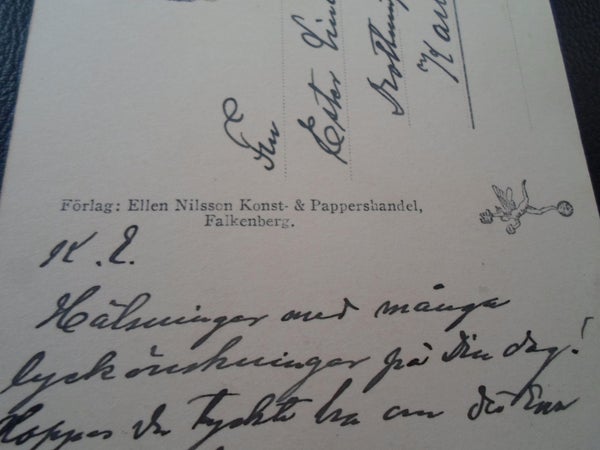 Fru
Ester
Drottning
Förlag: Ellen Nilsson Konst- & Pappershandel,
Falkenberg.
K. E.
Hälsningar med många
lyckönskningar på Din dag!
Hoppas Du tyckte bra om